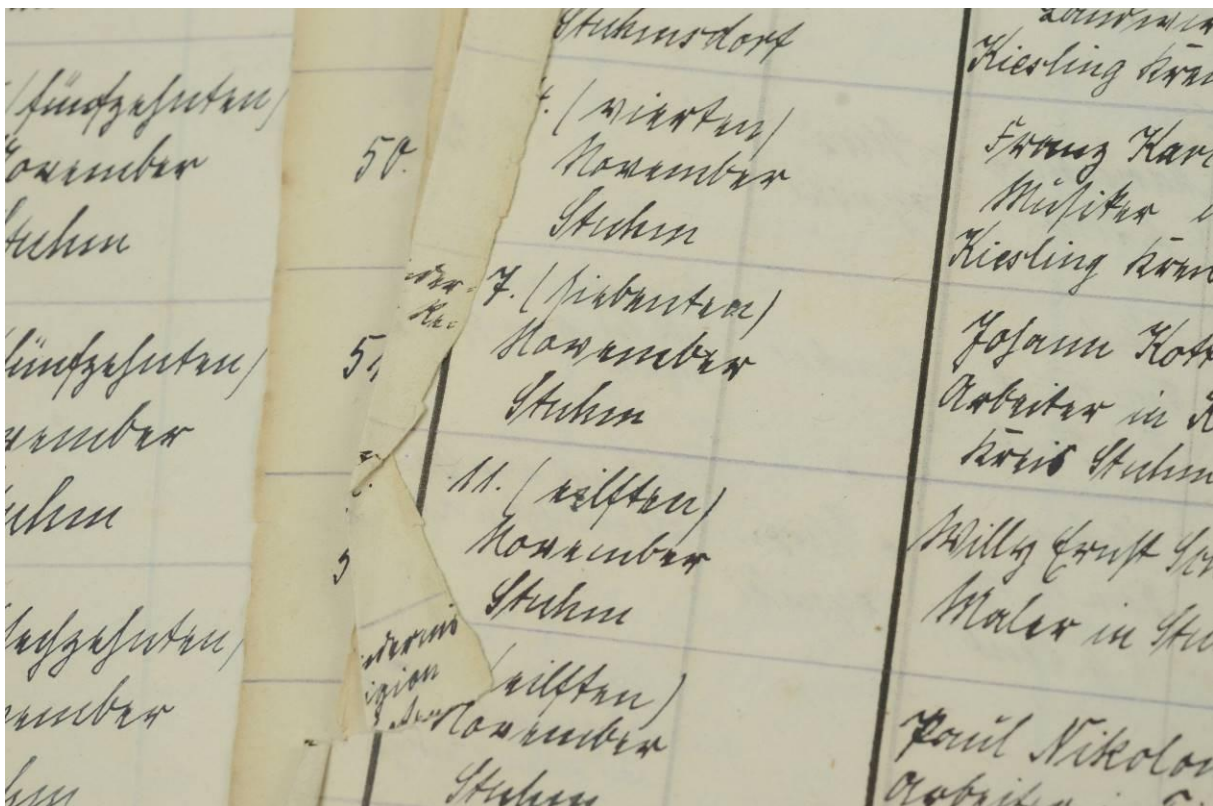 (fünfzehnten)
November
Stuhm
fünfzehnten)
vember
uhm
sechzehnten)
vember
hm
50.
51
Stuhmsdorf
4. (vierten)
November
Stuhm
7. (siebenten)
November
Stuhm
11. (eilften)
November
Stuhm
(eilften)
November
Stuhm
igion
Kiesling
Franz Karl
Musiker
Kiesling
Johann Kott
Arbeiter in
Kreis Stuhm
Willy Ernst
Maler in Stu
Paul Nikolo
Arbeiter